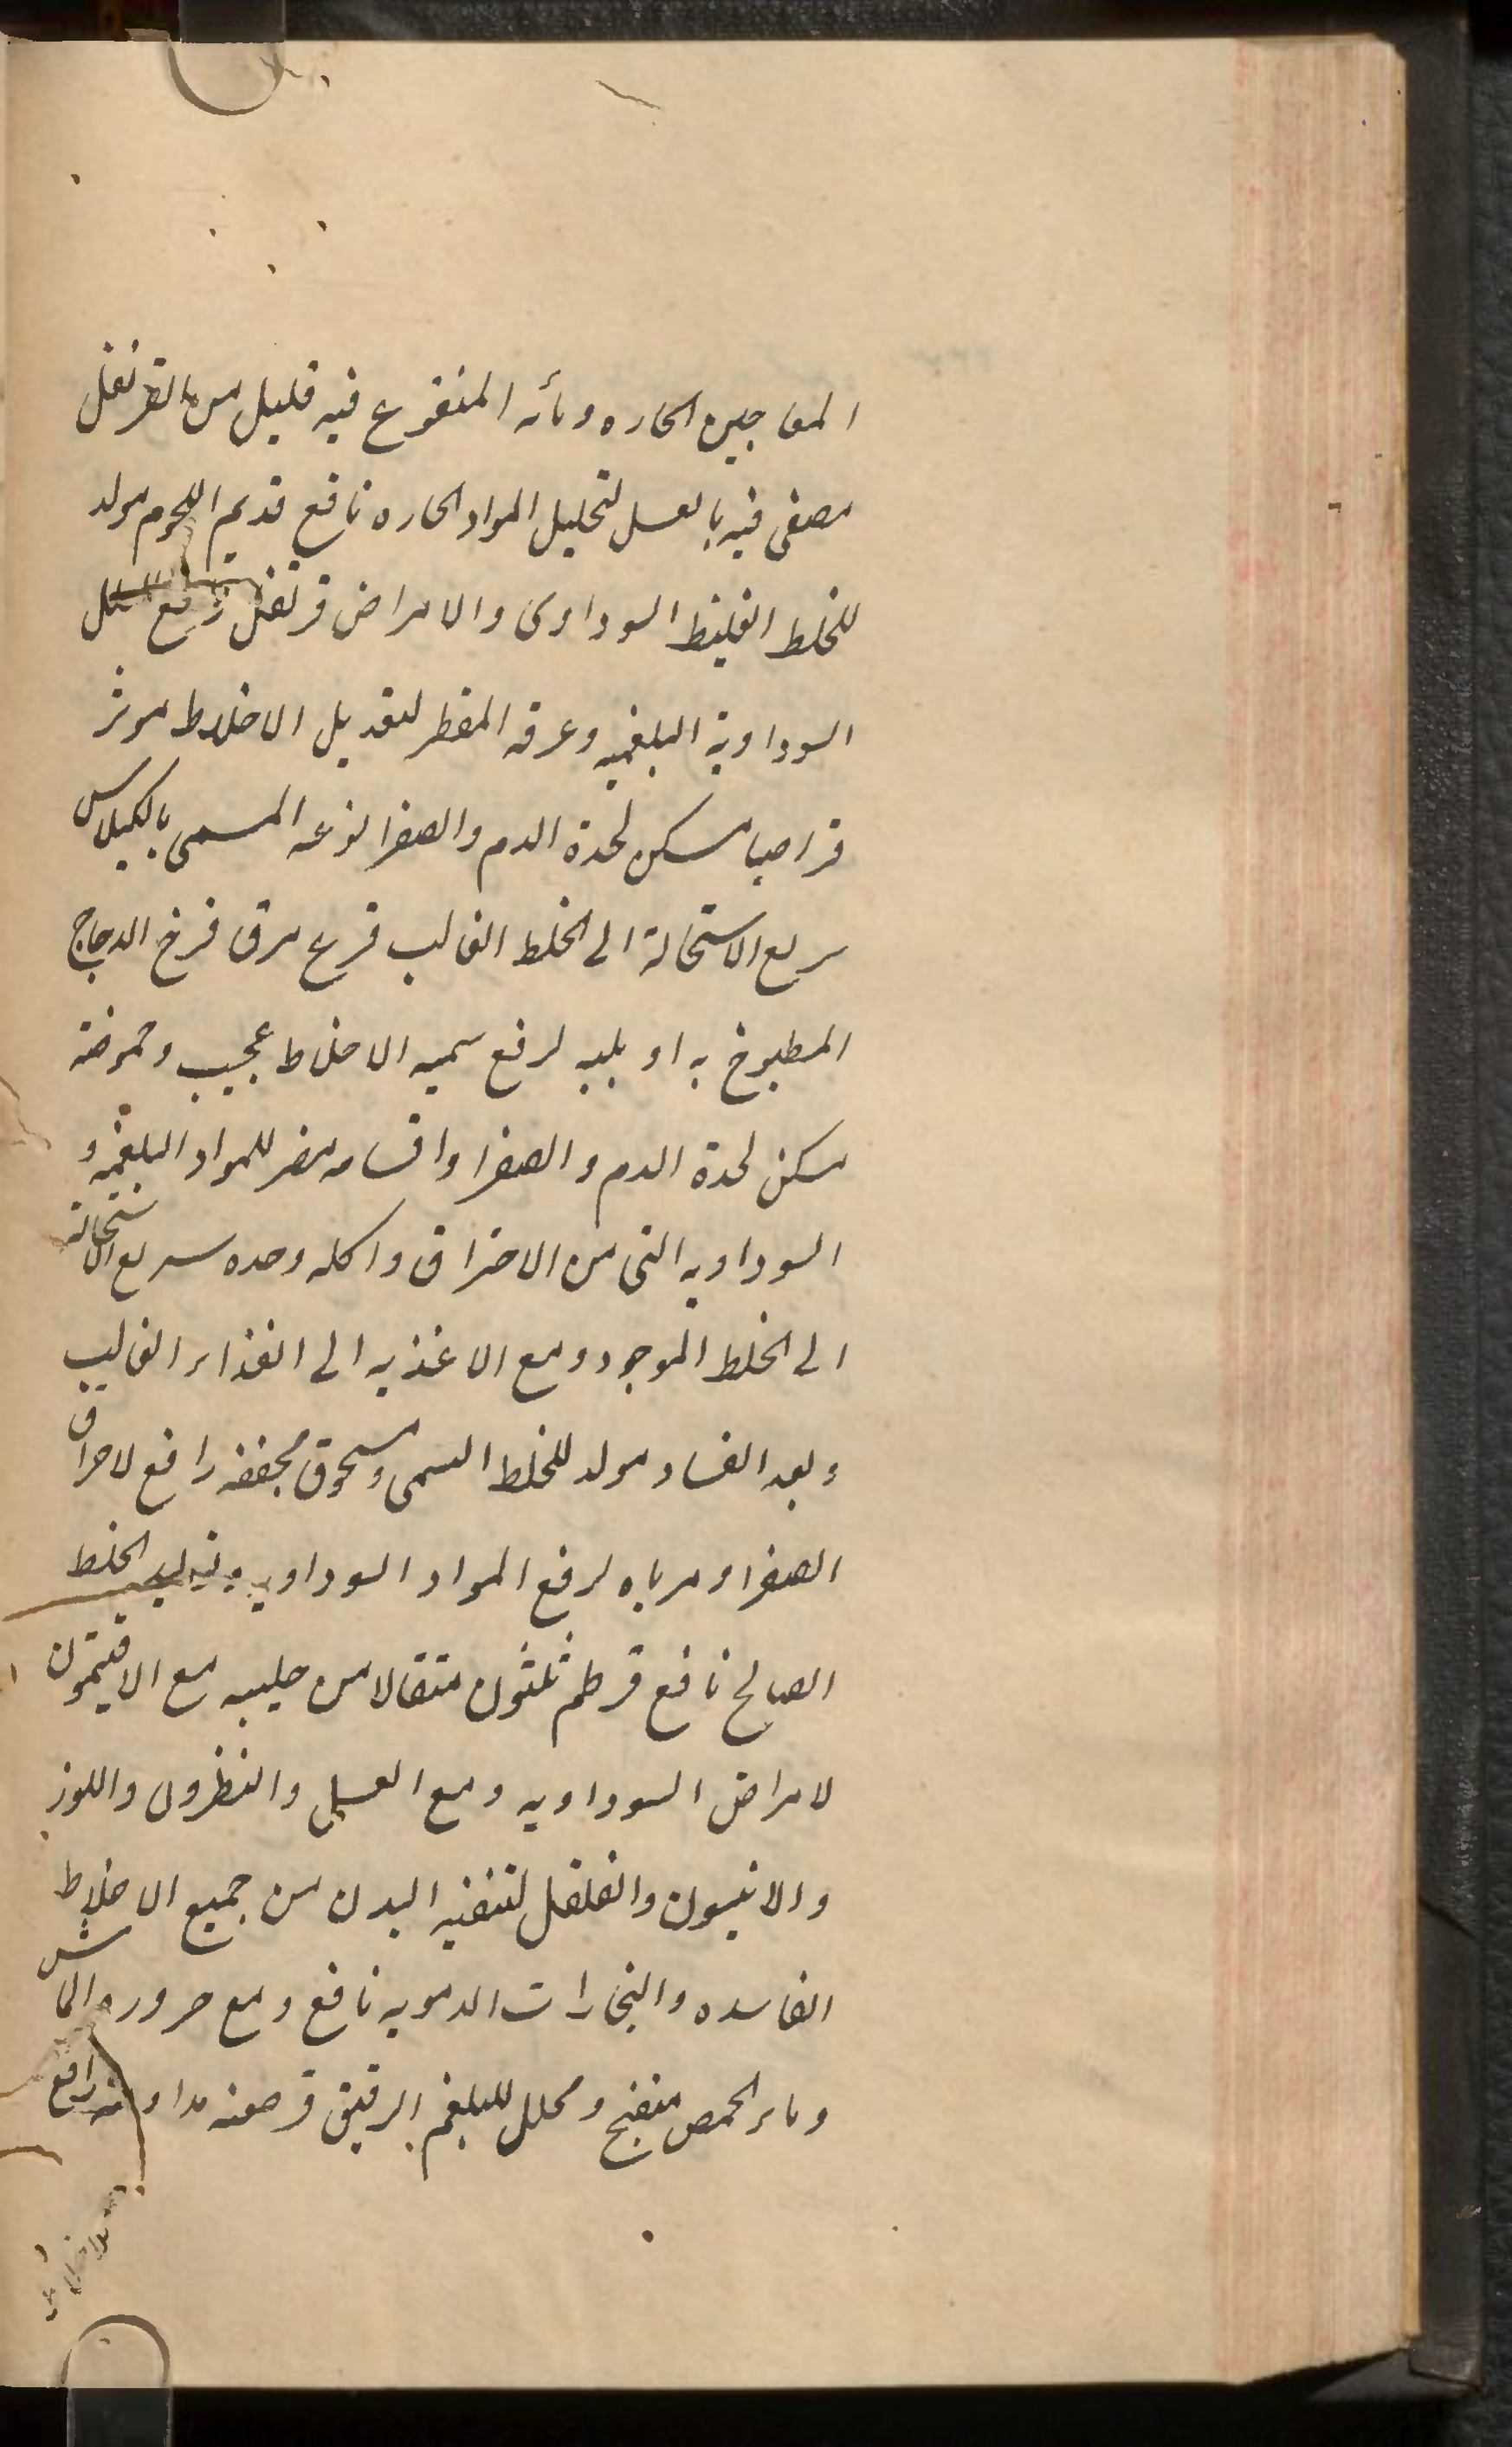 المعاجين الحاره ومائه المنقوع فيه قليل من القرنفل
مصفى فيه بالعسل لتحليل المواد الحاره نافع قديم اللحوم مولد
للخلط الغليظ السوداوى والامراض قرنفل رافع
السوداوية البلغميه وعرقه المقطر لتعديل الاخلاط موثر
قراصيا مسكن لحدة الدم والصفرا نوعه المسمى بالكيلاس
سريع الاستحالة الى الخلط الغالب قرع مرق فرخ الدجاج
المطبوخ به او بلبه لرفع سميه الاخلاط عجيب وحموضة
مسكن لحدة الدم والصفرا واقسامه مضر للمواد البلغميه و
السوداويه التى من الاحتراق واكله وحده سريع الاستحالة
الى الخلط الموجود ومع الاغذيه الى الغذاء الغالب
وبعد الفساد مولد للخلط السمى ومسحوق مجففه رافع لاحراق
الصفرا ومرباه لرفع المواد السوداويه وتوليد الخلط
الصالح نافع قرطم ثلثون مثقالا من حليبه مع الافتيمون
لامراض السوداويه ومع العسل والنطرون واللوز
والانيسون والفلفل لتنقيه البدن من جميع الاخلاط
الفاسده والبخارات الدمويه نافع ومع حروره الماش
وماء الحمص منضج ومحلل للبلغم الرقيق قرصعنه مداومته رافع